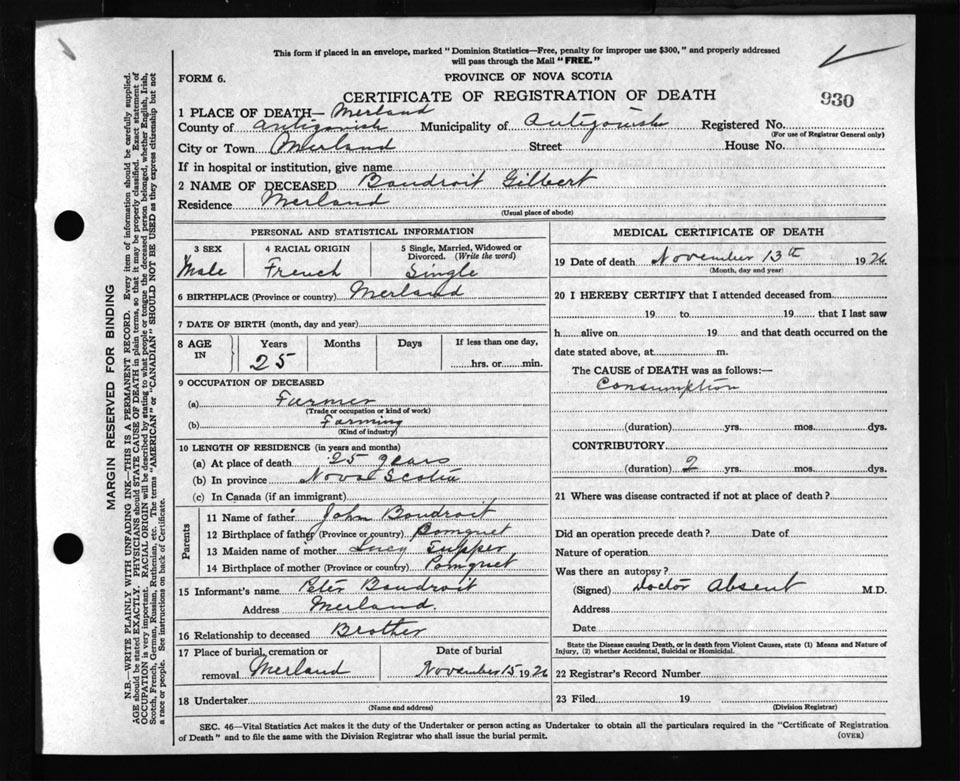 This form if placed in an envelope, marked "Dominion Statistics—Free, penalty for improper use $300," and properly addressed
will pass through the Mail "FREE."
FORM 6.
PROVINCE OF NOVA SCOTIA
CERTIFICATE OF REGISTRATION OF DEATH
930
1 PLACE OF DEATH— Merland
County of Antigonish Municipality of Antigonish Registered No.
(For use of Registrar General only)
City or Town Merland Street House No.
If in hospital or institution, give name
2 NAME OF DECEASED Boudroit Gilbert
Residence Merland
(Usual place of abode)
PERSONAL AND STATISTICAL INFORMATION
3 SEX 4 RACIAL ORIGIN 5 Single, Married, Widowed or
Divorced. (Write the word)
Male French Single
6 BIRTHPLACE (Province or country) Merland
7 DATE OF BIRTH (month, day and year)
8 AGE IN Years Months Days If less than one day,
25 hrs. or min.
9 OCCUPATION OF DECEASED
(a) Farmer
(Trade or occupation or kind of work)
(b) Farming
(Kind of industry)
10 LENGTH OF RESIDENCE (in years and months)
(a) At place of death 25 years
(b) In province Nova Scotia
(c) In Canada (if an immigrant)
Parents
11 Name of father John Boudroit
12 Birthplace of father (Province or country) Pomquet
13 Maiden name of mother Lucy Tupper
14 Birthplace of mother (Province or country) Pomquet
15 Informant's name Peter Boudroit
Address Merland.
16 Relationship to deceased Brother
17 Place of burial, cremation or Date of burial
removal Merland November 15 1926
18 Undertaker
(Name and address)
MEDICAL CERTIFICATE OF DEATH
19 Date of death November 13th 1926
(Month, day and year)
20 I HEREBY CERTIFY that I attended deceased from
19 to 19 that I last saw
h alive on 19 and that death occurred on the
date stated above, at m.
The CAUSE of DEATH was as follows:—
Consumption
(duration) yrs. mos. dys.
CONTRIBUTORY
(duration) 2 yrs. mos. dys.
21 Where was disease contracted if not at place of death?
Did an operation precede death? Date of
Nature of operation
Was there an autopsy?
(Signed) Doctor Absent M.D.
Address
Date
State the Disease causing Death, or in death from Violent Causes, state (1) Means and Nature of
Injury, (2) whether Accidental, Suicidal or Homicidal.
22 Registrar's Record Number
23 Filed 19
(Division Registrar)
SEC. 46—Vital Statistics Act makes it the duty of the Undertaker or person acting as Undertaker to obtain all the particulars required in the "Certificate of Registration
of Death" and to file the same with the Division Registrar who shall issue the burial permit.
(OVER)
MARGIN RESERVED FOR BINDING
N.B.—WRITE PLAINLY WITH UNFADING INK—THIS IS A PERMANENT RECORD. Every item of information should be carefully supplied.
AGE should be stated EXACTLY. PHYSICIANS should STATE CAUSE OF DEATH in plain terms, so that it may be properly classified. Exact statement of
OCCUPATION is very important. RACIAL ORIGIN will be described by stating to what people or tongue the deceased person belonged, whether English, Irish,
Scotch, French, German, Russian, Ruthenian, etc. The terms "AMERICAN" or "CANADIAN" SHOULD NOT BE USED as they express citizenship but not
a race or people. See instructions on back of Certificate.